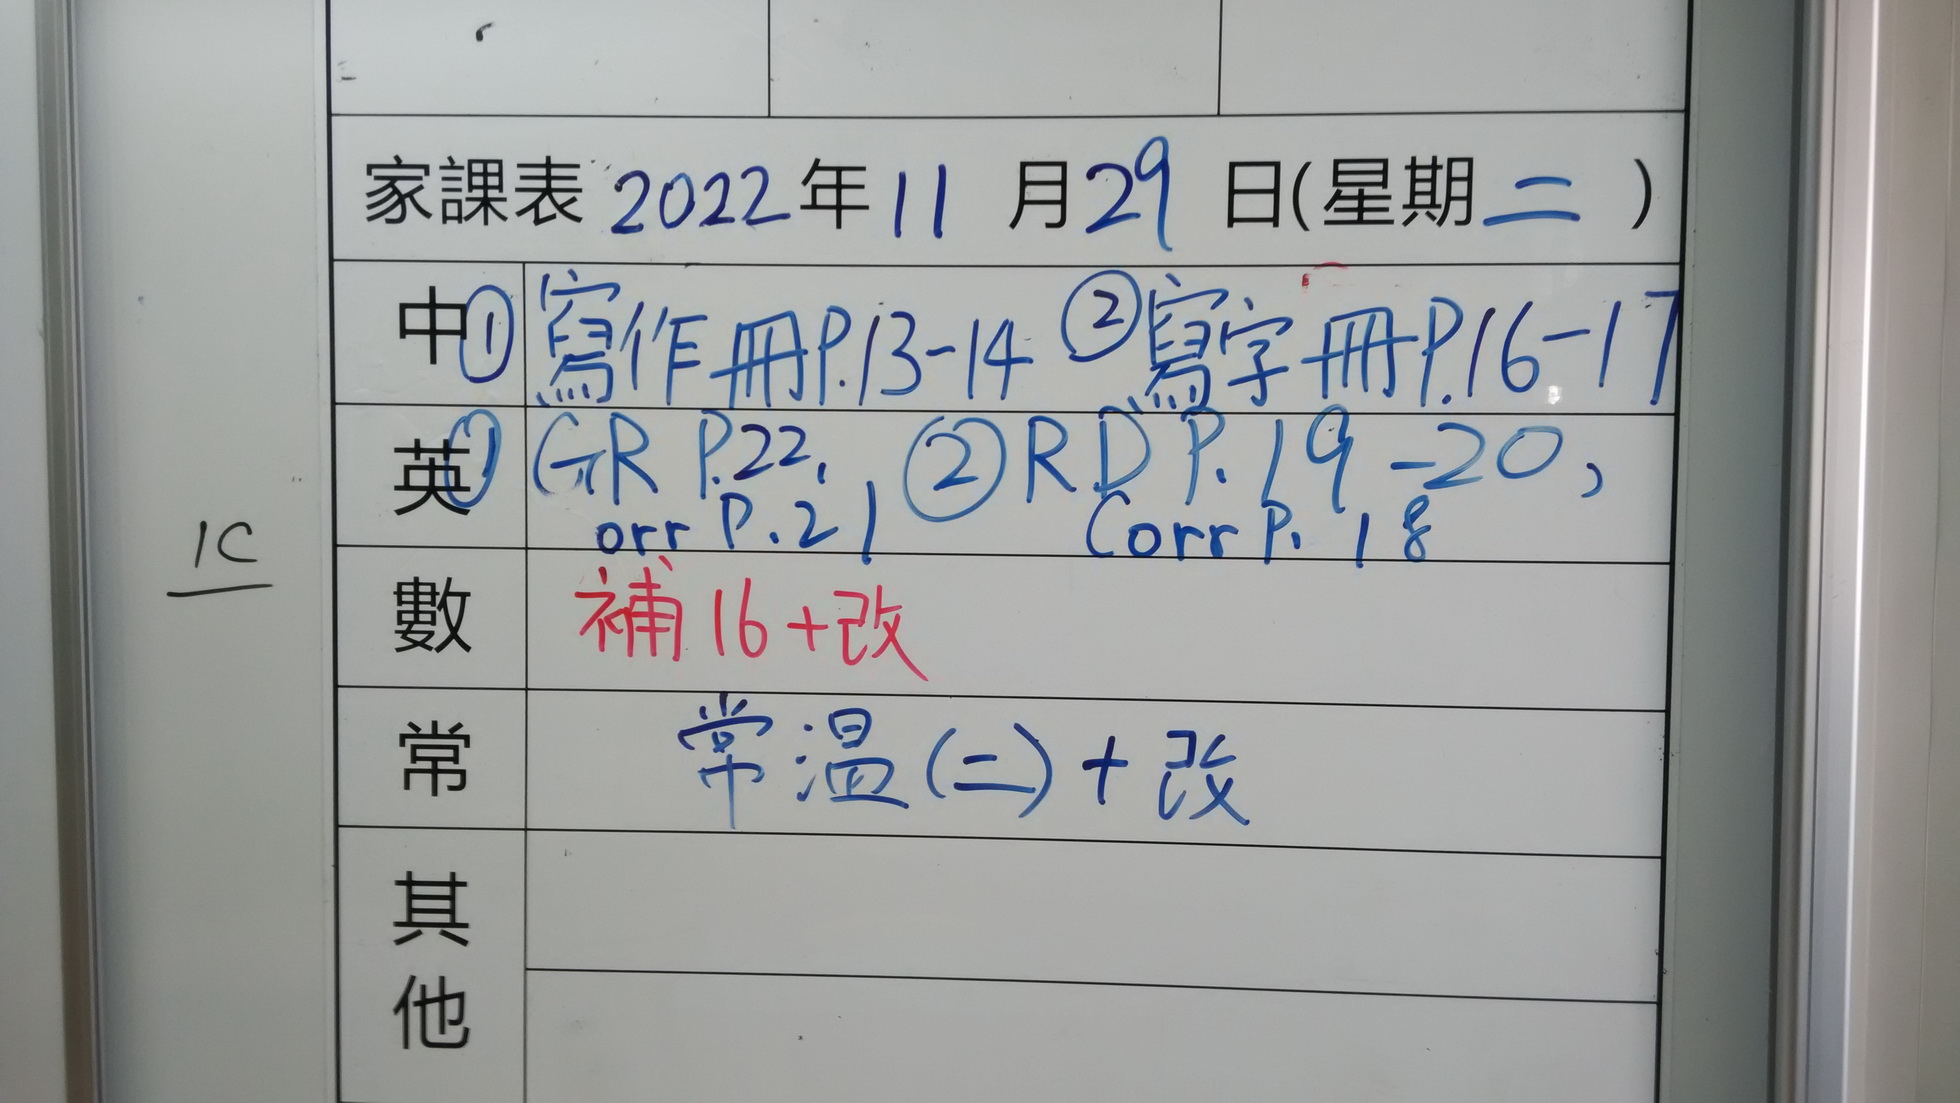 家課表 2022年11月29日(星期二)
中① 寫作冊P.13-14 ②寫字冊P.16-17
英① GR P.22, ②RD P.19-20,
orr P.21 Corr P.18
1C
數 補16+改
常 常溫(二)+改
其他